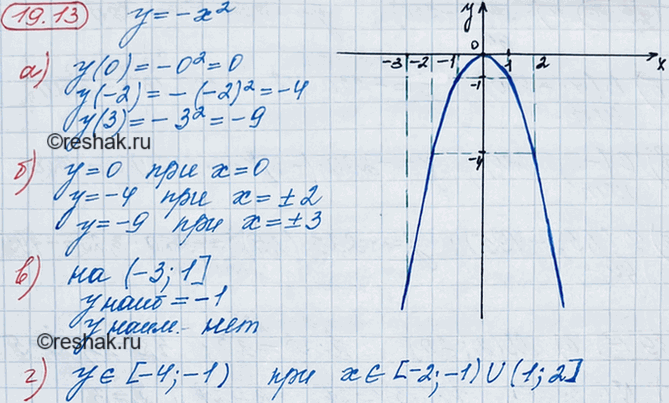 19.13 y = -x²
а) y(0) = -0² = 0
y(-2) = -(-2)² = -4
y(3) = -3² = -9
©reshak.ru
б) y=0 при x=0
y=-4 при x=±2
y=-9 при x=±3
в) на (-3; 1]
y наиб = -1
y наим. - нет
©reshak.ru
г) y∈[-4;-1) при x∈[-2;-1)∪(1;2]
y
0
-3 -2 -1 1 2 x
-1
-4